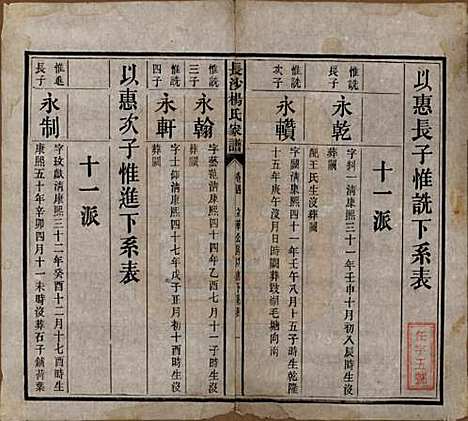 以惠長子惟詵下系表
十一派
惟詵
長子
永乾
字斜一清康熙三十一年壬申十月初八辰時生沒
配王氏生沒葬闕
惟詵
次子
永纘
字闕清康熙四十一年壬午八月十五子時生乾隆
十五年庚午沒月日時闕葬毀塘毛塘向南
長沙楊氏家譜
惟詵
三子
永翰
字藝苑清康熙四十四年乙酉七月 時生沒
葬闕
惟詵
四子
永軒
字士仰清康熙四十七年戊子五月初十酉時生沒
葬闕
以惠次子惟進下系表
十一派
惟進
長子
永制
字玫獻清康熙三十二年癸酉十二月十七酉時生
康熙五十年辛卯四月十一未時沒葬石子鋪黃葉